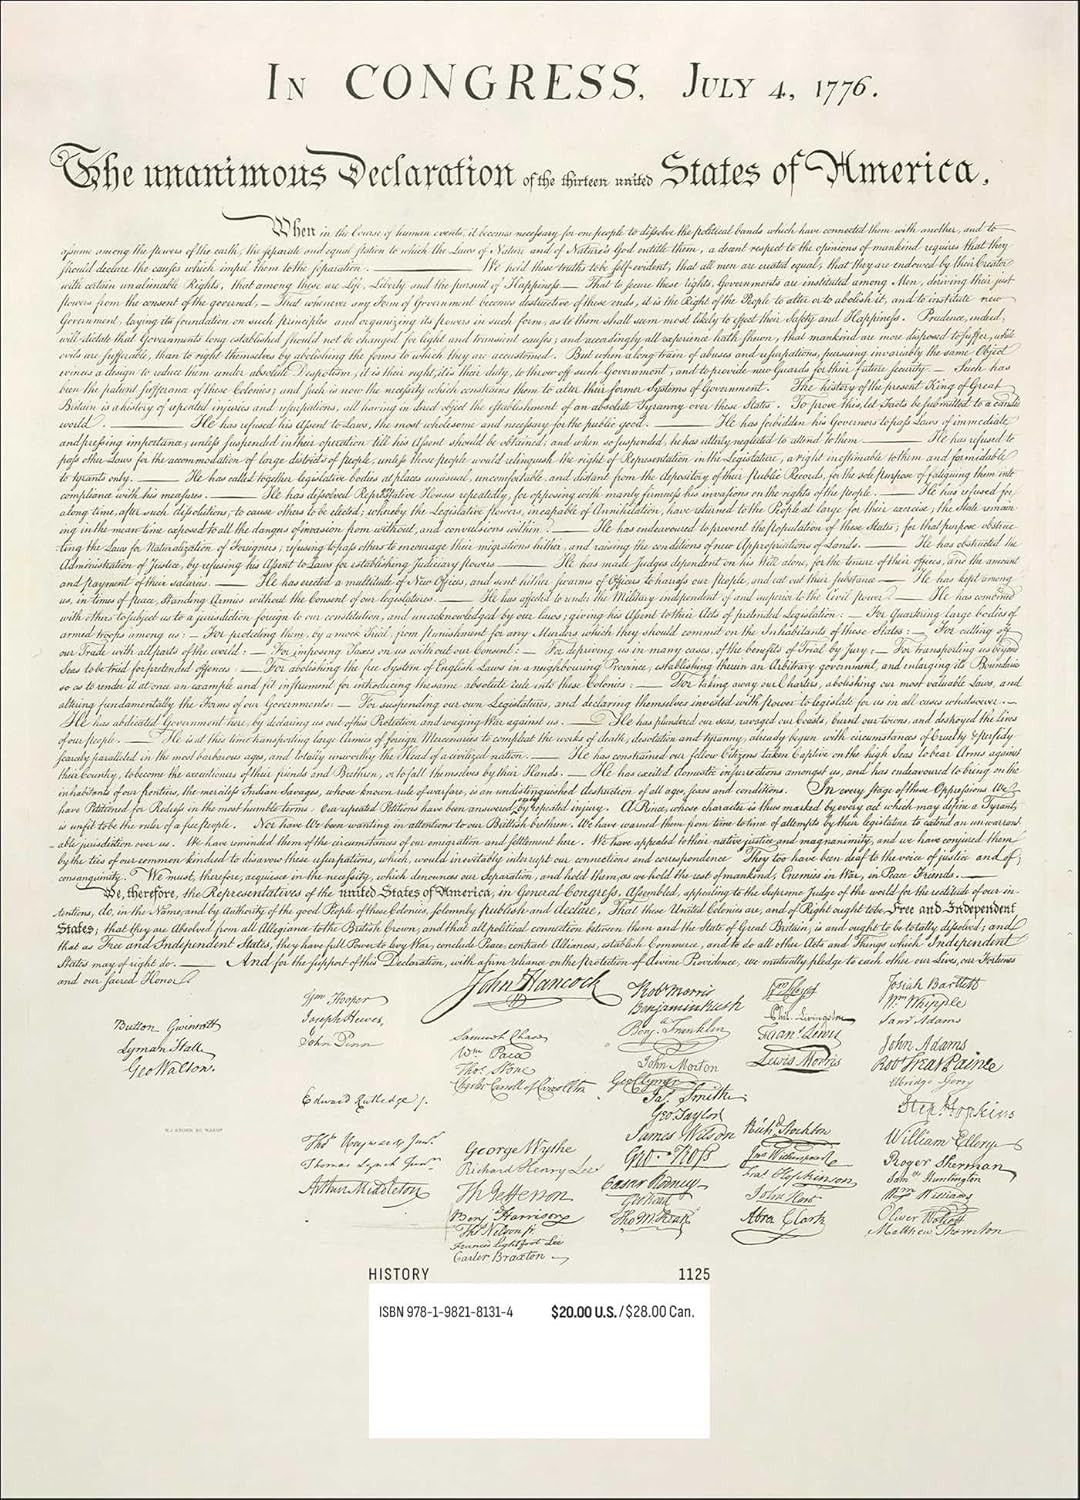 IN CONGRESS, JULY 4, 1776.
The unanimous Declaration of the thirteen united States of America,
When in the Course of human events, it becomes necessary for one people to dissolve the political bands which have connected them with another, and to
assume among the powers of the earth, the separate and equal station to which the Laws of Nature and of Nature's God entitle them, a decent respect to the opinions of mankind requires that they
should declare the causes which impel them to the separation. — We hold these truths to be self-evident, that all men are created equal, that they are endowed by their Creator
with certain unalienable Rights, that among these are Life, Liberty and the pursuit of Happiness — That to secure these rights, Governments are instituted among Men, deriving their just
powers from the consent of the governed, — That whenever any Form of Government becomes destructive of these ends, it is the Right of the People to alter or to abolish it, and to institute new
Government, laying its foundation on such principles and organizing its powers in such form, as to them shall seem most likely to effect their Safety and Happiness. Prudence, indeed,
will dictate that Governments long established should not be changed for light and transient causes; and accordingly all experience hath shewn, that mankind are more disposed to suffer, while
evils are sufferable, than to right themselves by abolishing the forms to which they are accustomed. But when a long train of abuses and usurpations, pursuing invariably the same Object
evinces a design to reduce them under absolute Despotism, it is their right, it is their duty, to throw off such Government, and to provide new Guards for their future security. — Such has
been the patient sufferance of these Colonies; and such is now the necessity which constrains them to alter their former Systems of Government. The history of the present King of Great
Britain is a history of repeated injuries and usurpations, all having in direct object the establishment of an absolute Tyranny over these States. To prove this, let Facts be submitted to a candid
world. — He has refused his Assent to Laws, the most wholesome and necessary for the public good. — He has forbidden his Governors to pass Laws of immediate
and pressing importance, unless suspended in their operation till his Assent should be obtained; and when so suspended, he has utterly neglected to attend to them. — He has refused to
pass other Laws for the accommodation of large districts of people, unless those people would relinquish the right of Representation in the Legislature, a right inestimable to them and formidable
to tyrants only. — He has called together legislative bodies at places unusual, uncomfortable, and distant from the depository of their public Records, for the sole purpose of fatiguing them into
compliance with his measures. — He has dissolved Representative Houses repeatedly, for opposing with manly firmness his invasions on the rights of the people. — He has refused for
a long time, after such dissolutions, to cause others to be elected; whereby the Legislative powers, incapable of Annihilation, have returned to the People at large for their exercise; the State remain
ing in the mean time exposed to all the dangers of invasion from without, and convulsions within. — He has endeavoured to prevent the population of these States; for that purpose obstruc
ting the Laws for Naturalization of Foreigners; refusing to pass others to encourage their migrations hither, and raising the conditions of new Appropriations of Lands. — He has obstructed the
Administration of Justice, by refusing his Assent to Laws for establishing Judiciary powers — He has made Judges dependent on his Will alone, for the tenure of their offices, and the amount
and payment of their salaries. — He has erected a multitude of New Offices, and sent hither swarms of Officers to harass our people, and eat out their substance — He has kept among
us, in times of peace, Standing Armies without the Consent of our legislatures. — He has affected to render the Military independent of and superior to the Civil power. — He has combined
with others to subject us to a jurisdiction foreign to our constitution, and unacknowledged by our laws; giving his Assent to their Acts of pretended Legislation: — For Quartering large bodies of
armed troops among us: — For protecting them, by a mock Trial, from punishment for any Murders which they should commit on the Inhabitants of these States: — For cutting off
our Trade with all parts of the world: — For imposing Taxes on us without our Consent: — For depriving us in many cases, of the benefits of Trial by Jury; — For transporting us beyond
Seas to be tried for pretended offences. — For abolishing the free System of English Laws in a neighbouring Province, establishing therein an Arbitrary government, and enlarging its Boundaries
so as to render it at once an example and fit instrument for introducing the same absolute rule into these Colonies: — For taking away our Charters, abolishing our most valuable Laws, and
altering fundamentally the Forms of our Governments: — For suspending our own Legislatures, and declaring themselves invested with power to legislate for us in all cases whatsoever. —
He has abdicated Government here, by declaring us out of his Protection and waging War against us. — He has plundered our seas, ravaged our Coasts, burnt our towns, and destroyed the lives
of our people. — He is at this time transporting large Armies of foreign Mercenaries to compleat the works of death, desolation and tyranny, already begun with circumstances of Cruelty & perfidy
scarcely paralleled in the most barbarous ages, and totally unworthy the Head of a civilized nation. — He has constrained our fellow Citizens taken Captive on the high Seas to bear Arms against
their Country, to become the executioners of their friends and Brethren, or to fall themselves by their Hands. — He has excited domestic insurrections amongst us, and has endeavoured to bring on the
inhabitants of our frontiers, the merciless Indian Savages, whose known rule of warfare, is an undistinguished destruction of all ages, sexes and conditions. In every stage of these Oppressions We
have Petitioned for Redress in the most humble terms: Our repeated Petitions have been answered only by repeated injury. A Prince, whose character is thus marked by every act which may define a Tyrant,
is unfit to be the ruler of a free people. Nor have We been wanting in attentions to our Brittish brethren. We have warned them from time to time of attempts by their legislature to extend an unwarrant
able jurisdiction over us. We have reminded them of the circumstances of our emigration and settlement here. We have appealed to their native justice and magnanimity, and we have conjured them
by the ties of our common kindred to disavow these usurpations, which, would inevitably interrupt our connections and correspondence They too have been deaf to the voice of justice and of
consanguinity. We must, therefore, acquiesce in the necessity, which denounces our Separation, and hold them, as we hold the rest of mankind, Enemies in War, in Peace Friends. —
We, therefore, the Representatives of the united States of America, in General Congress, Assembled, appealing to the Supreme Judge of the world for the rectitude of our in-
tentions, do, in the Name, and by Authority of the good People of these Colonies, solemnly publish and declare, That these United Colonies are, and of Right ought to be Free and Independent
States; that they are Absolved from all Allegiance to the British Crown, and that all political connection between them and the State of Great Britain, is and ought to be totally dissolved; and
that as Free and Independent States, they have full Power to levy War, conclude Peace, contract Alliances, establish Commerce, and to do all other Acts and Things which Independent
States may of right do. — And for the support of this Declaration, with a firm reliance on the protection of divine Providence, we mutually pledge to each other our Lives, our Fortunes
and our sacred Honor.
Button Gwinnett
Lyman Hall
Geo Walton.
Wm Hooper
Joseph Hewes,
John Penn
Edward Rutledge /.
Thos Heyward Junr.
Thomas Lynch Junr.
Arthur Middleton
John Hancock
Samuel Chase
Wm Paca
Thos Stone
Charles Carroll of Carrollton
George Wythe
Richard Henry Lee
Th Jefferson
Benj Harrison
Thos Nelson jr.
Francis Lightfoot Lee
Carter Braxton
Robt Morris
Benjamin Rush
Benj. Franklin
John Morton
Geo Clymer
Jas. Smith
Geo. Taylor
James Wilson
Geo. Ross
Caesar Rodney
Geo Read
Tho M:Kean
Wm Floyd
Phil. Livingston
Frans. Lewis
Lewis Morris
Richd. Stockton
Jno Witherspoon
Fras. Hopkinson
John Hart
Abra Clark
Josiah Bartlett
Wm Whipple
Saml Adams
John Adams
Robt Treat Paine
Elbridge Gerry
Step. Hopkins
William Ellery
Roger Sherman
Saml Huntington
Wm Williams
Oliver Wolcott
Matthew Thornton
HISTORY 1125
ISBN 978-1-9821-8131-4 $20.00 U.S./$28.00 Can.